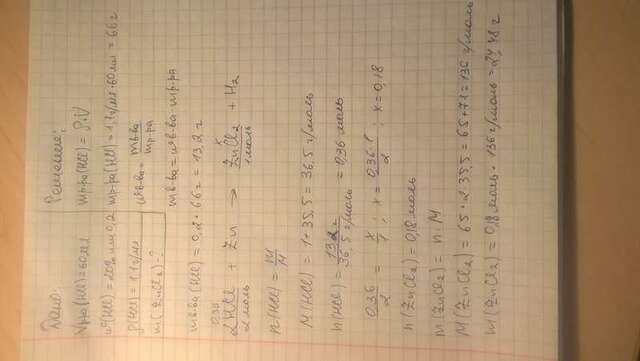 Дано:
Vр-ра(HCl)=60мл
ω(HCl)=20% или 0,2
ρ(HCl)=1,1г/мл
m(ZnCl₂)-?
Решение:
mр-ра(HCl) = ρ·V
mр-ра(HCl) = 1,1г/мл·60мл = 66г
ωв-ва = mв-ва / mр-ра
mв-ва = ωв-ва·mр-ра
mв-ва(HCl) = 0,2 · 66г = 13,2г
0,36 x
2HCl + Zn → ZnCl₂ + H₂
2моль 1моль
n(HCl) = m/M
M(HCl) = 1+35,5 = 36,5 г/моль
n(HCl) = 13,2г / 36,5 г/моль = 0,36 моль
0,36/2 = x/1 ; x = 0,36·1/2 ; x=0,18
n(ZnCl₂) = 0,18моль
m(ZnCl₂) = n·M
M(ZnCl₂) = 65 + 2·35,5 = 65+71 = 136 г/моль
m(ZnCl₂) = 0,18моль · 136г/моль = 24,48г